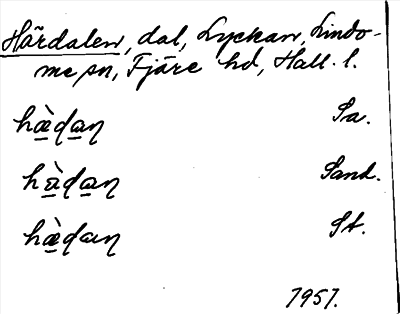 Härdalen, dal, Lyckan, Lindo-
me sn, Fjäre hd, Hall. l.
hæ̀dan Sa.
hæ̀dan Sand.
hæ̀dan St.
1957.